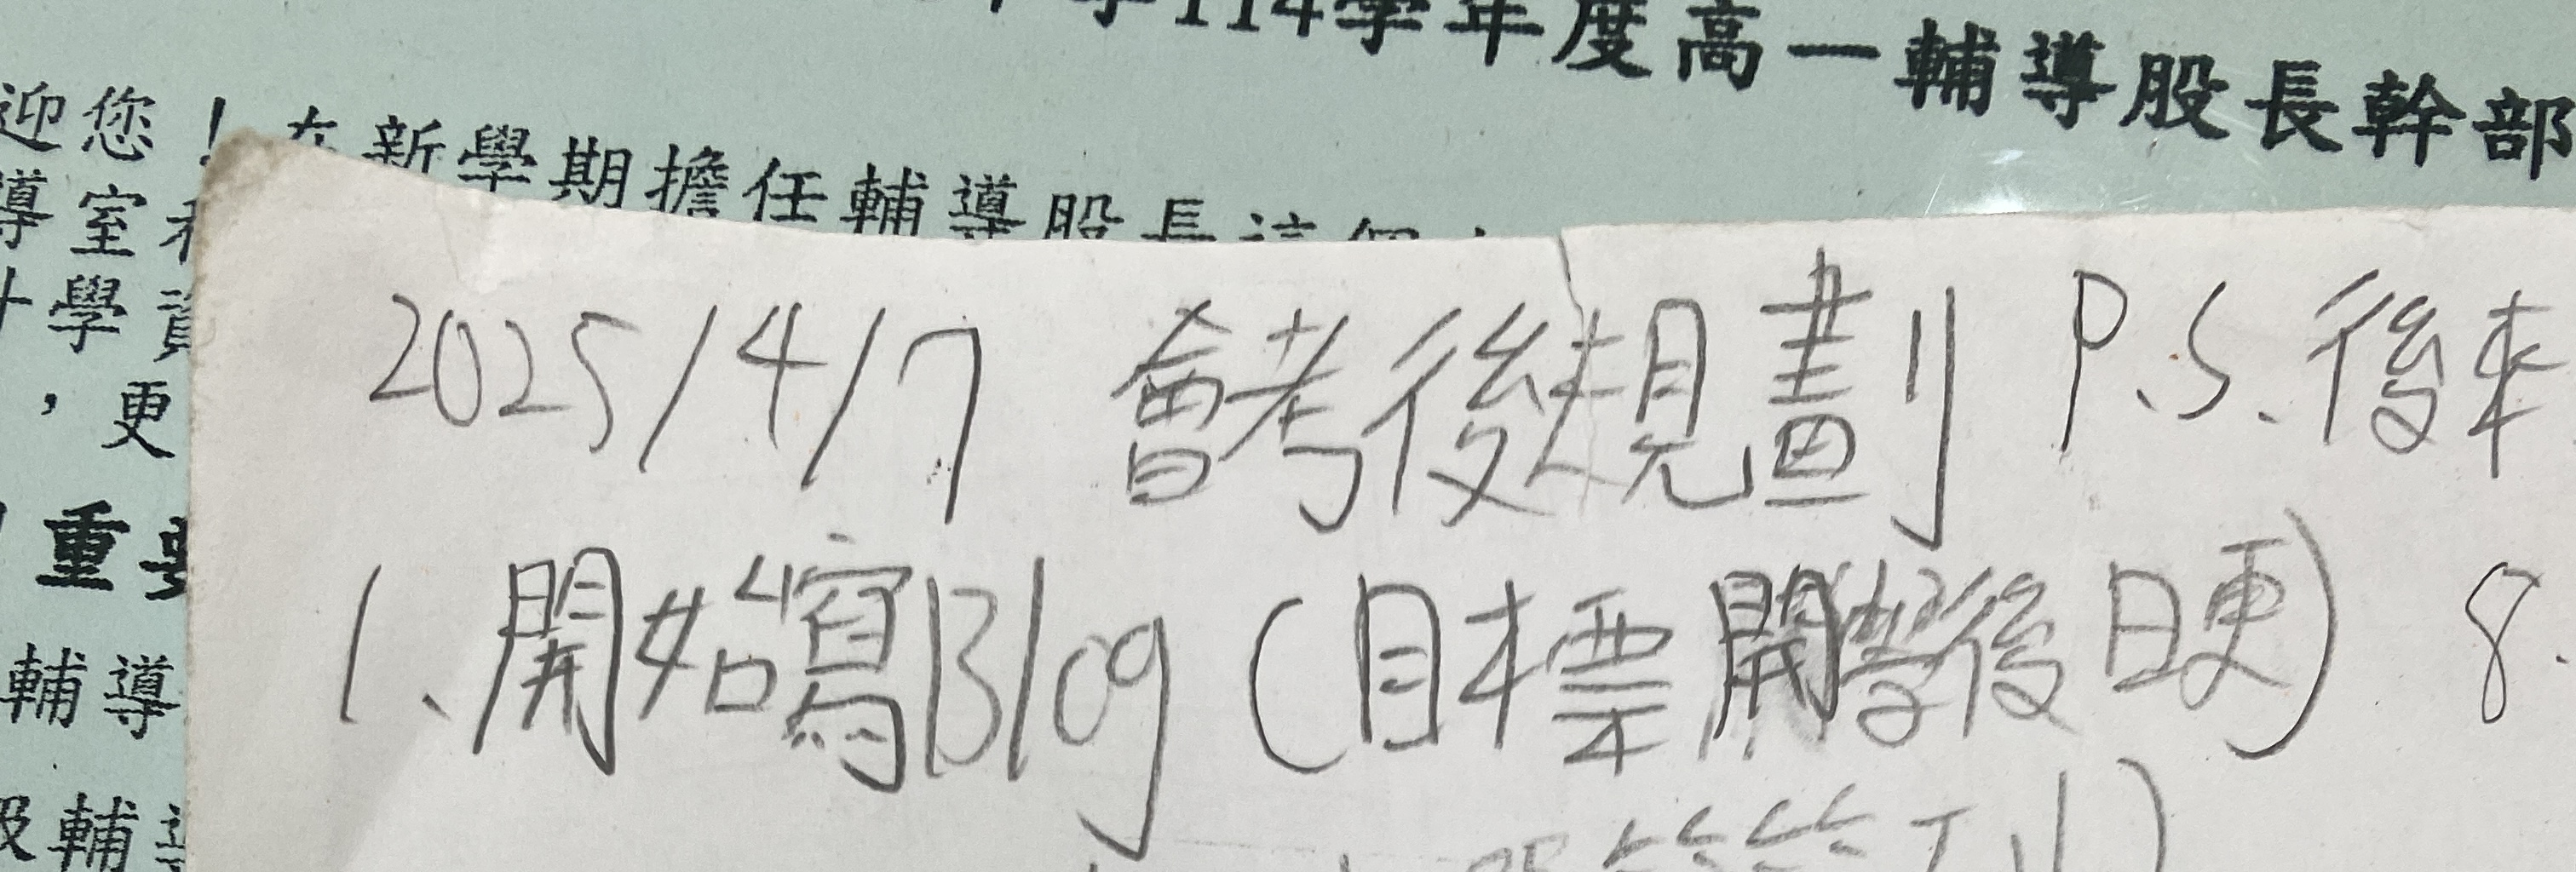 學114學年度高一輔導股長幹部
迎您！在新學期擔任輔導股長這個
導室
學資
，更
重要
輔導
輔導
2025/4/7 會考後規劃 P.S.後來
1.開始寫Blog（目標開學後日更） 8.